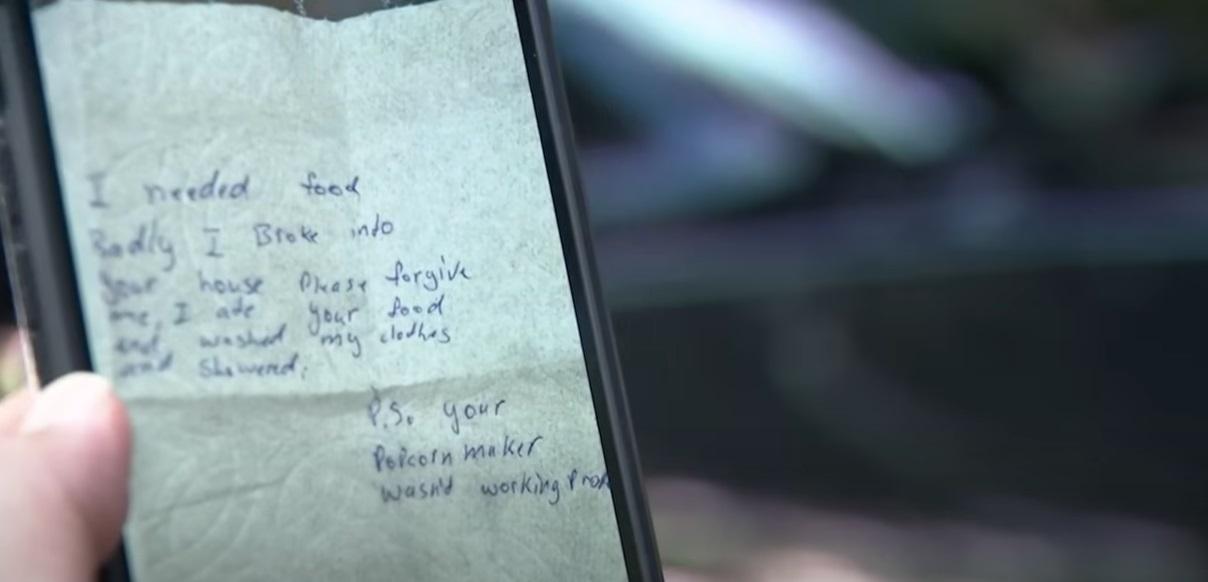 I needed food
Badly I Broke into
your house Please forgive
me, I ate your food
and washed my clothes
and Showered.
P.S. your
Popcorn maker
wasn't working Prop